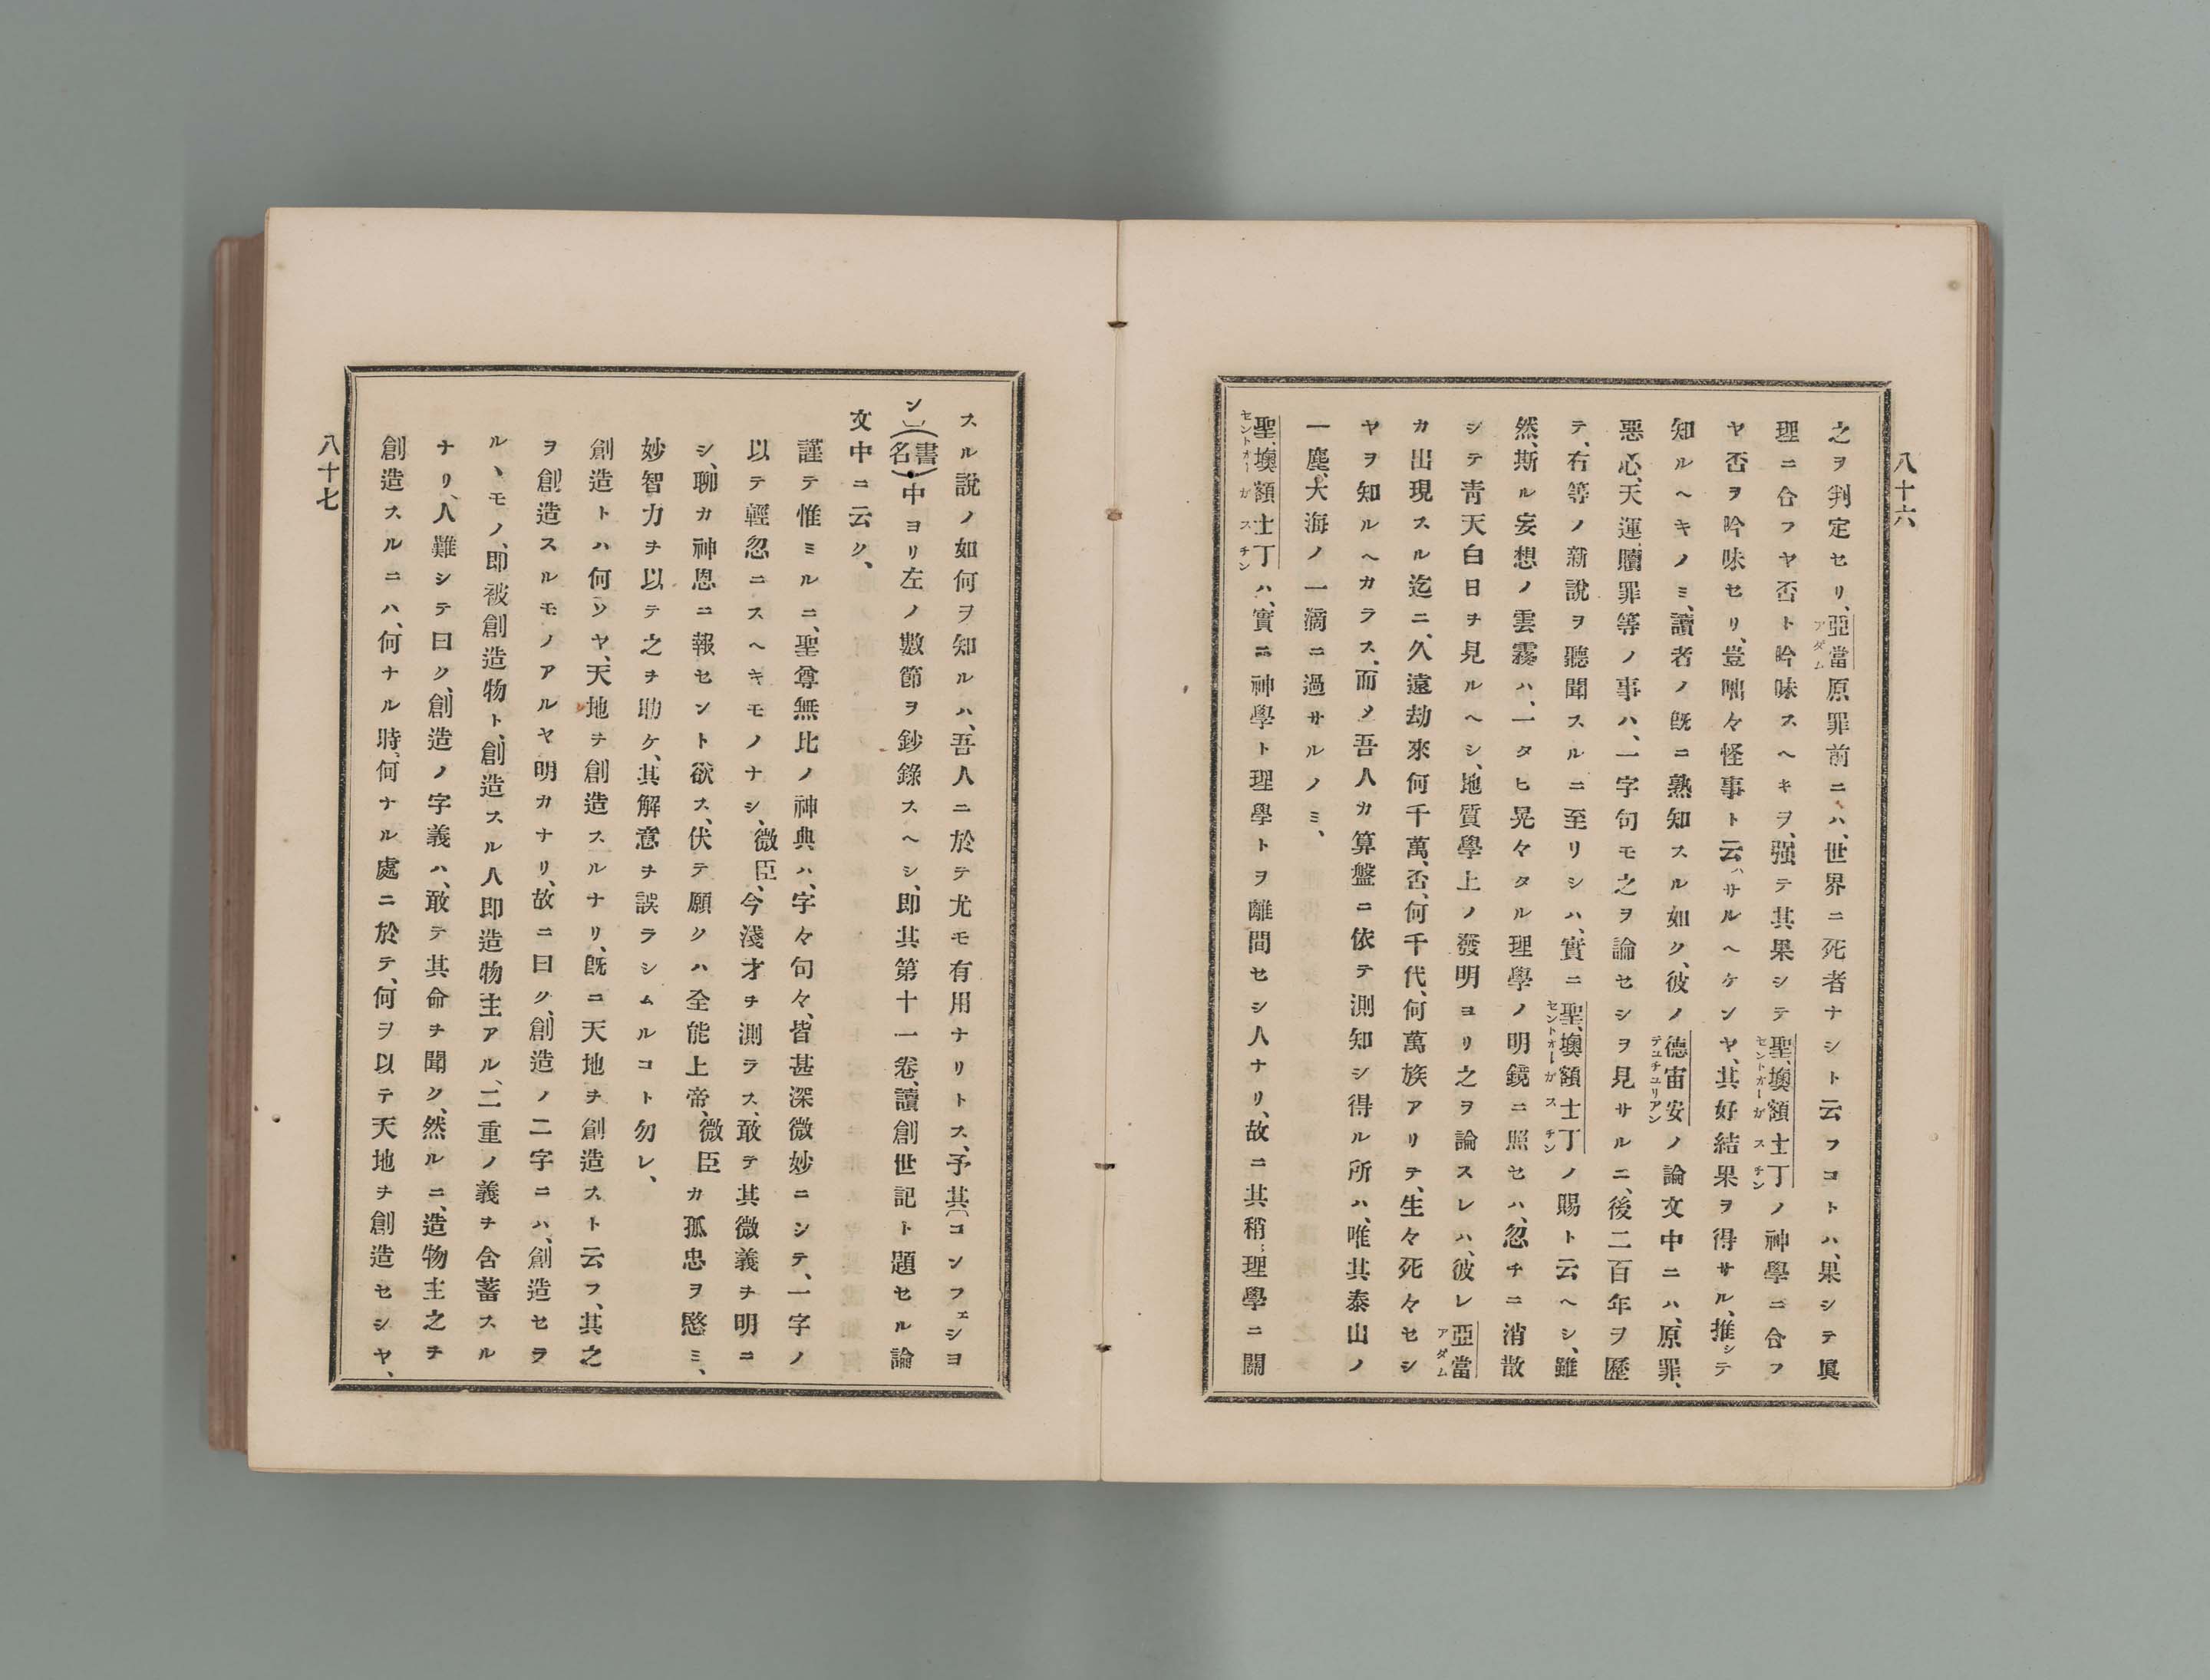 八十六
之ヲ判定セリ、亞當原罪前ニハ、世界ニ死者ナシト云フコトハ、果シテ眞
アダム
理ニ合フヤ否ト吟味スヘキヲ、强テ其果シテ聖、墺額士丁ノ神學ニ合フ
セントオーガスチン
ヤ否ヲ吟味セリ、豈咄々怪事ト云ハサルヘケンヤ、其好結果ヲ得サル、推シテ
知ルヘキノミ、讀者ノ旣ニ熟知スル如ク、彼ノ德宙安ノ論文中ニハ、原罪、
テユチユリアン
惡心、天運、贖罪等ノ事ハ、一字句モ之ヲ論セシヲ見サルニ、後二百年ヲ歷
テ、右等ノ新說ヲ聽聞スルニ至リシハ、實ニ聖、墺額士丁ノ賜ト云ヘシ、雖
セントオーガスチン
然、斯ル妄想ノ雲霧ハ、一タヒ晃々タル理學ノ明鏡ニ照セハ、忽チニ消散
シテ靑天白日ヲ見ルヘシ、地質學上ノ發明ヨリ之ヲ論スレハ、彼レ亞當
アダム
カ出現スル迄ニ、久遠劫來何千萬、否、何千代、何萬族アリテ、生々死々セシ
ヤヲ知ルヘカラス、而メ吾人カ算盤ニ依テ測知シ得ル所ハ、唯其泰山ノ
一塵、大海ノ一滴ニ過サルノミ、
聖、墺額士丁ハ、實ニ神學ト理學トヲ離間セシ人ナリ、故ニ其稍〻理學ニ關
セントオーガスチン
スル說ノ如何ヲ知ルハ、吾人ニ於テ尤モ有用ナリトス、予其〔コンフェシヨ
ン〕(書名)中ヨリ左ノ數節ヲ鈔錄スヘシ、卽其第十一卷、讀創世記ト題セル論
文中ニ云ク、
謹テ惟ミルニ、聖尊無比ノ神典ハ、字々句々、皆甚深微妙ニシテ、一字ノ
以テ輕忽ニスヘキモノナシ、微臣、今淺才ヲ測ラス、敢テ其微義ヲ明ニ
シ、聊カ神恩ニ報セント欲ス、伏テ願クハ全能上帝、微臣カ孤忠ヲ愍ミ、
妙智力ヲ以テ之ヲ助ケ、其解意ヲ誤ラシムルコト勿レ、
創造トハ何ソヤ、天地ヲ創造スルナリ、旣ニ天地ヲ創造スト云フ、其之
ヲ創造スルモノアルヤ明カナリ、故ニ曰ク、創造ノ二字ニハ、創造セラ
ルヽモノ、卽被創造物ト、創造スル人卽造物主アル、二重ノ義ヲ含蓄スル
ナリ、人難シテ曰ク、創造ノ字義ハ、敢テ其命ヲ聞ク、然ルニ、造物主之ヲ
創造スルニハ、何ナル時、何ナル處ニ於テ、何ヲ以テ天地ヲ創造セシヤ、
八十七